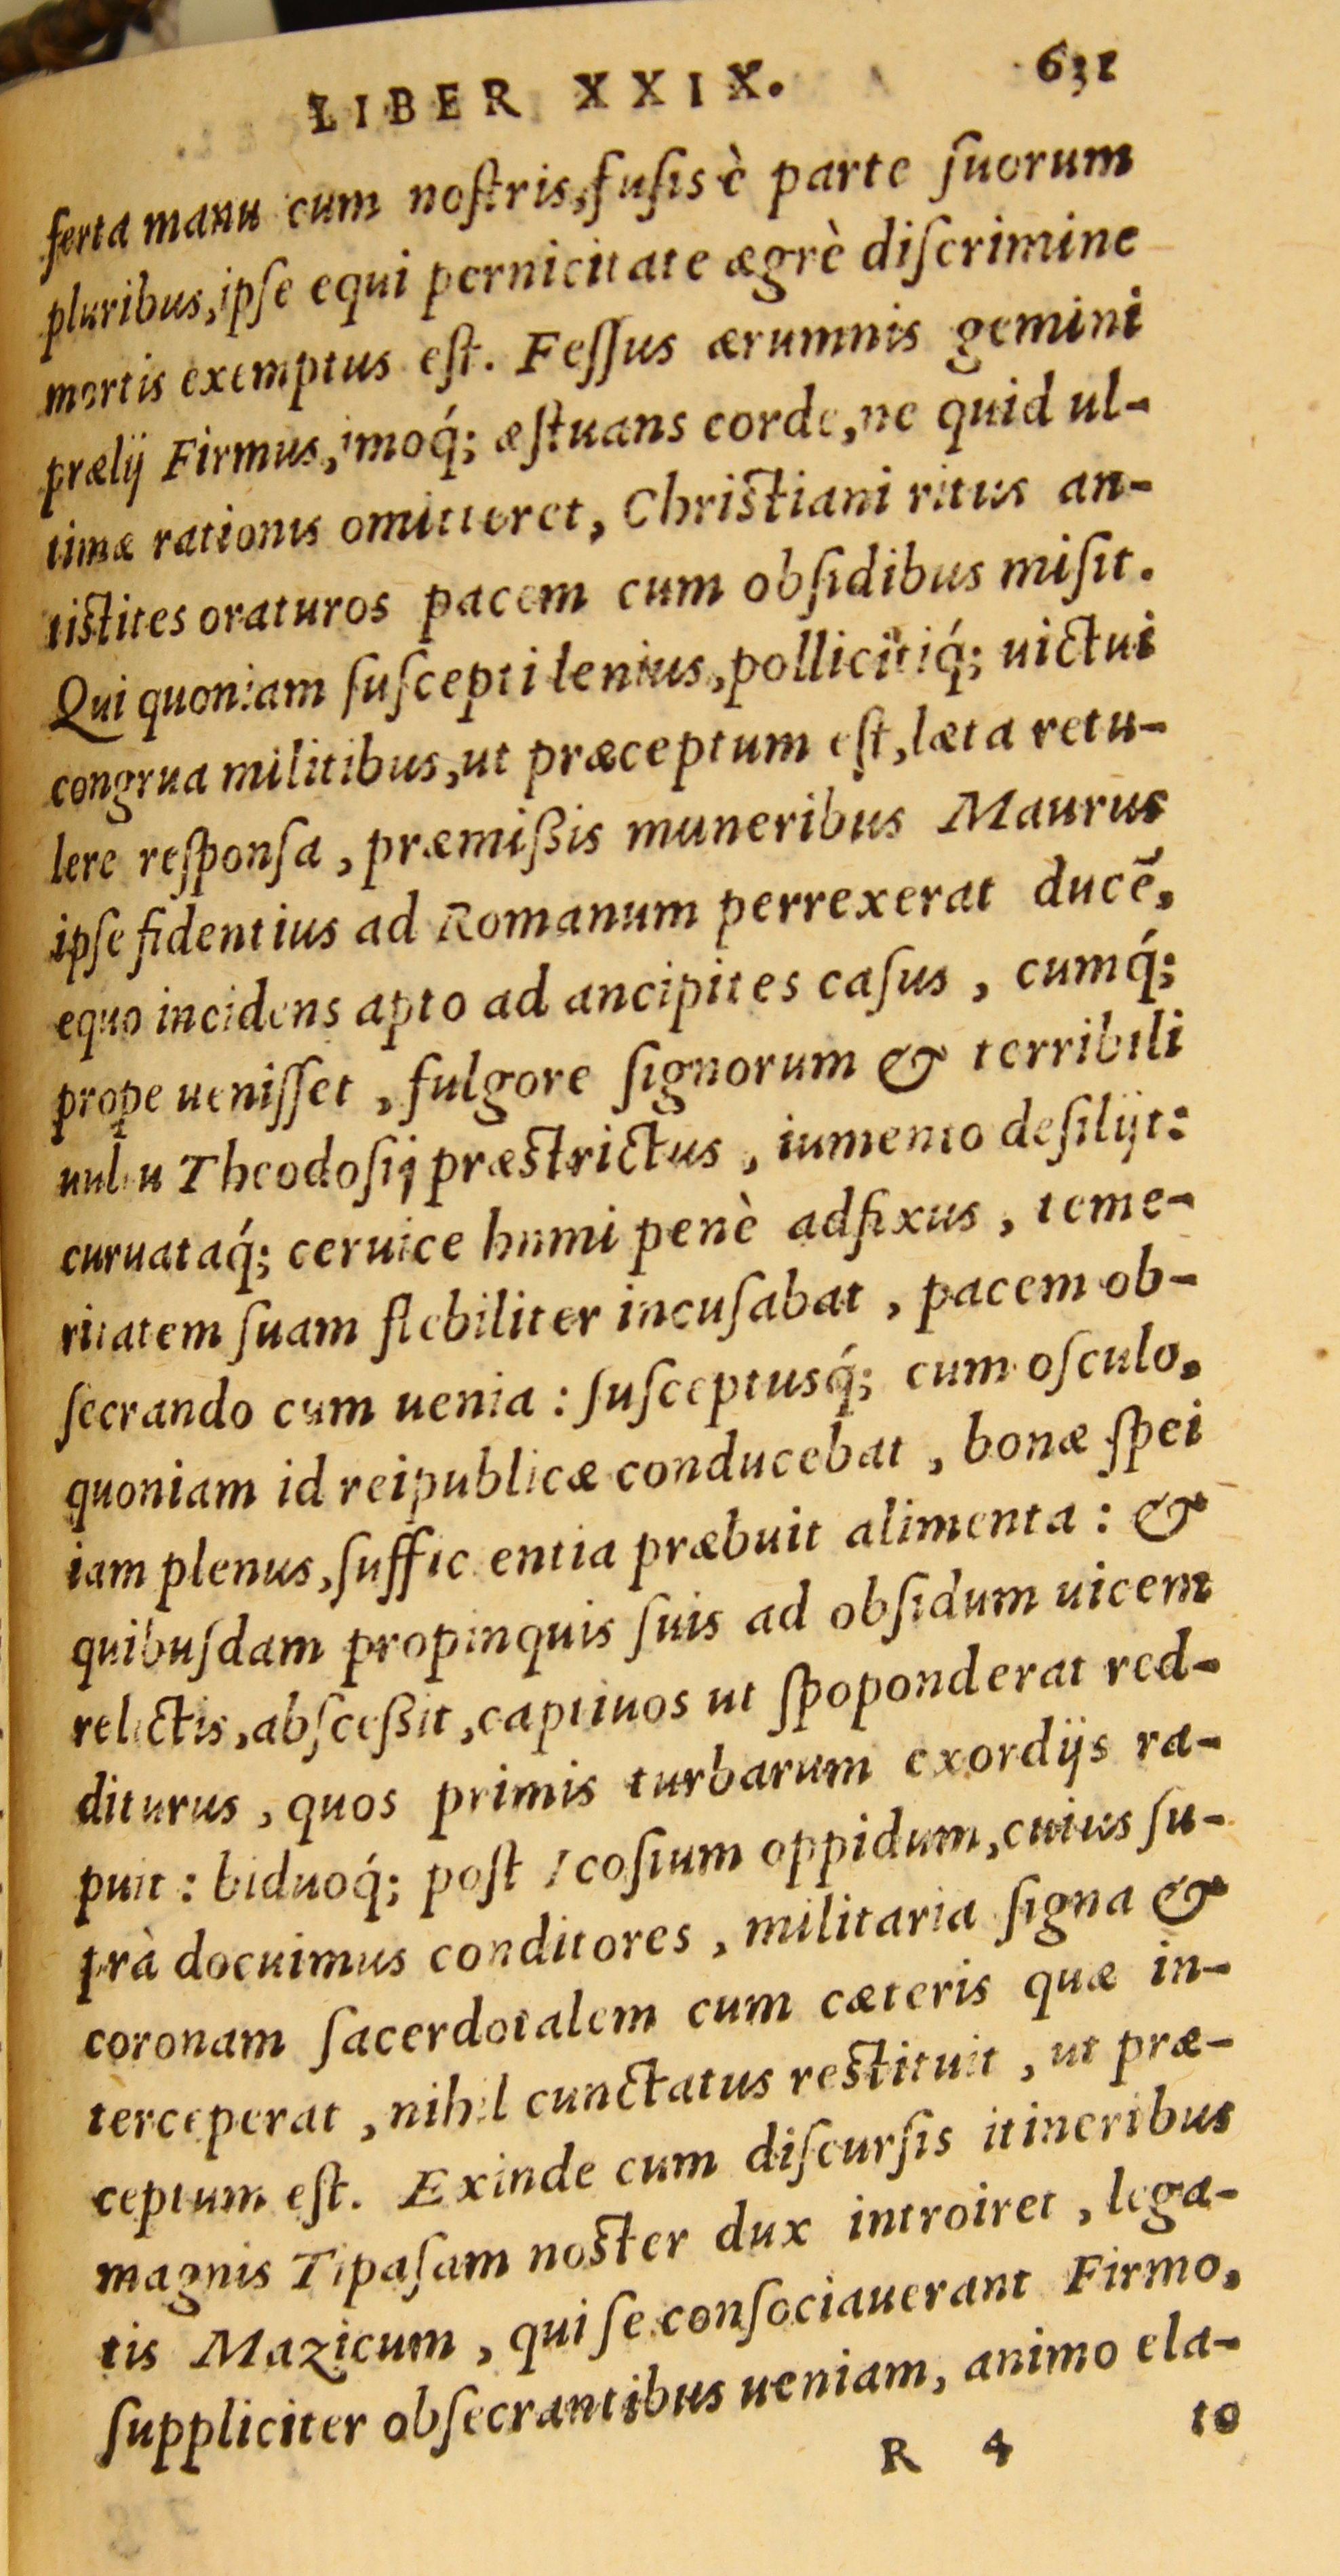 LIBER XXIX. 631
ſerta manu cum noſtris, fuſis è parte ſuorum
pluribus, ipſe equi pernicitate ægrè diſcrimine
mortis exemptus eſt. Feſſus ærumnis gemini
prælij Firmus, imoq́; æſtuans corde, ne quid ul-
timæ rationis omitteret, Chriſtiani ritus an-
tiſtites oraturos pacem cum obſidibus miſit.
Qui quoniam ſuſcepti lenius, pollicitiq́; uictui
congrua militibus, ut præceptum eſt, læta retu-
lere reſponſa, præmißis muneribus Maurus
ipſe fidentius ad Romanum perrexerat ducē,
equo incidens apto ad ancipites caſus, cumq́;
prope ueniſſet, fulgore ſignorum & terribili
uultu Theodoſij præſtrictus, iumento deſilijt:
curuataq́; ceruice humi penè adfixus, teme-
ritatem ſuam flebiliter incuſabat, pacem ob-
ſecrando cum uenia: ſuſceptusq́; cum oſculo,
quoniam id reipublicæ conducebat, bonæ ſpei
iam plenus, ſufficientia præbuit alimenta: &
quibuſdam propinquis ſuis ad obſidum uicem
relictis, abſceßit, captiuos ut ſpoponderat red-
diturus, quos primis turbarum exordijs ra-
puit: biduoq́; poſt Icoſium oppidum, cuius ſu-
prà docuimus conditores, militaria ſigna &
coronam ſacerdotalem cum cæteris quæ in-
terceperat, nihil cunctatus reſtituit, ut præ-
ceptum eſt. Exinde cum diſcurſis itineribus
magnis Tipaſam noſter dux introiret, lega-
tis Mazicum, qui ſe conſociauerant Firmo,
ſuppliciter obſecrantibus ueniam, animo ela-
R 4 to